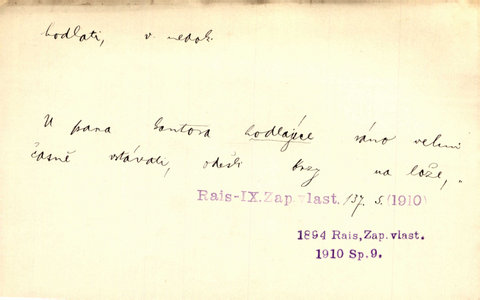 hodlati, v. nedok.
U pana kantora hodlajíce ráno velmi
časně vstávati, odešli brzy na lože,
Rais-IX.Zap.vlast. 137. s.(1910)
1894 Rais, Zap. vlast.
1910 Sp. 9.